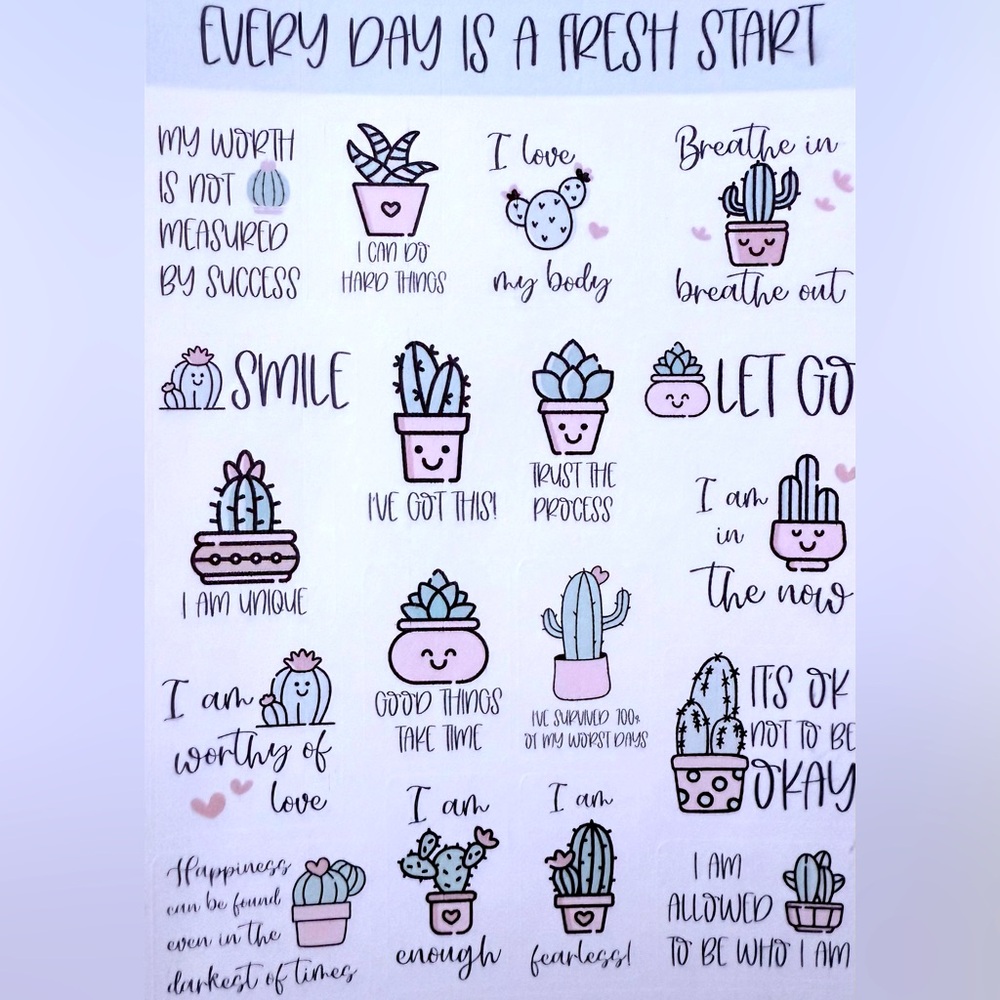 EVERY DAY IS A FRESH START
MY WORTH
IS NOT
MEASURED
BY SUCCESS
I CAN DO
HARD THINGS
I love
my body
Breathe in
breathe out
SMILE
I'VE GOT THIS!
TRUST THE
PROCESS
LET GO
I AM UNIQUE
I am
in
the now
I am
worthy of
love
GOOD THINGS
TAKE TIME
I'VE SURVIVED 100%
OF MY WORST DAYS
IT'S OK
NOT TO BE
OKAY
Happiness
can be found
even in the
darkest of times
I am
enough
I am
fearless!
I AM
ALLOWED
TO BE WHO I AM